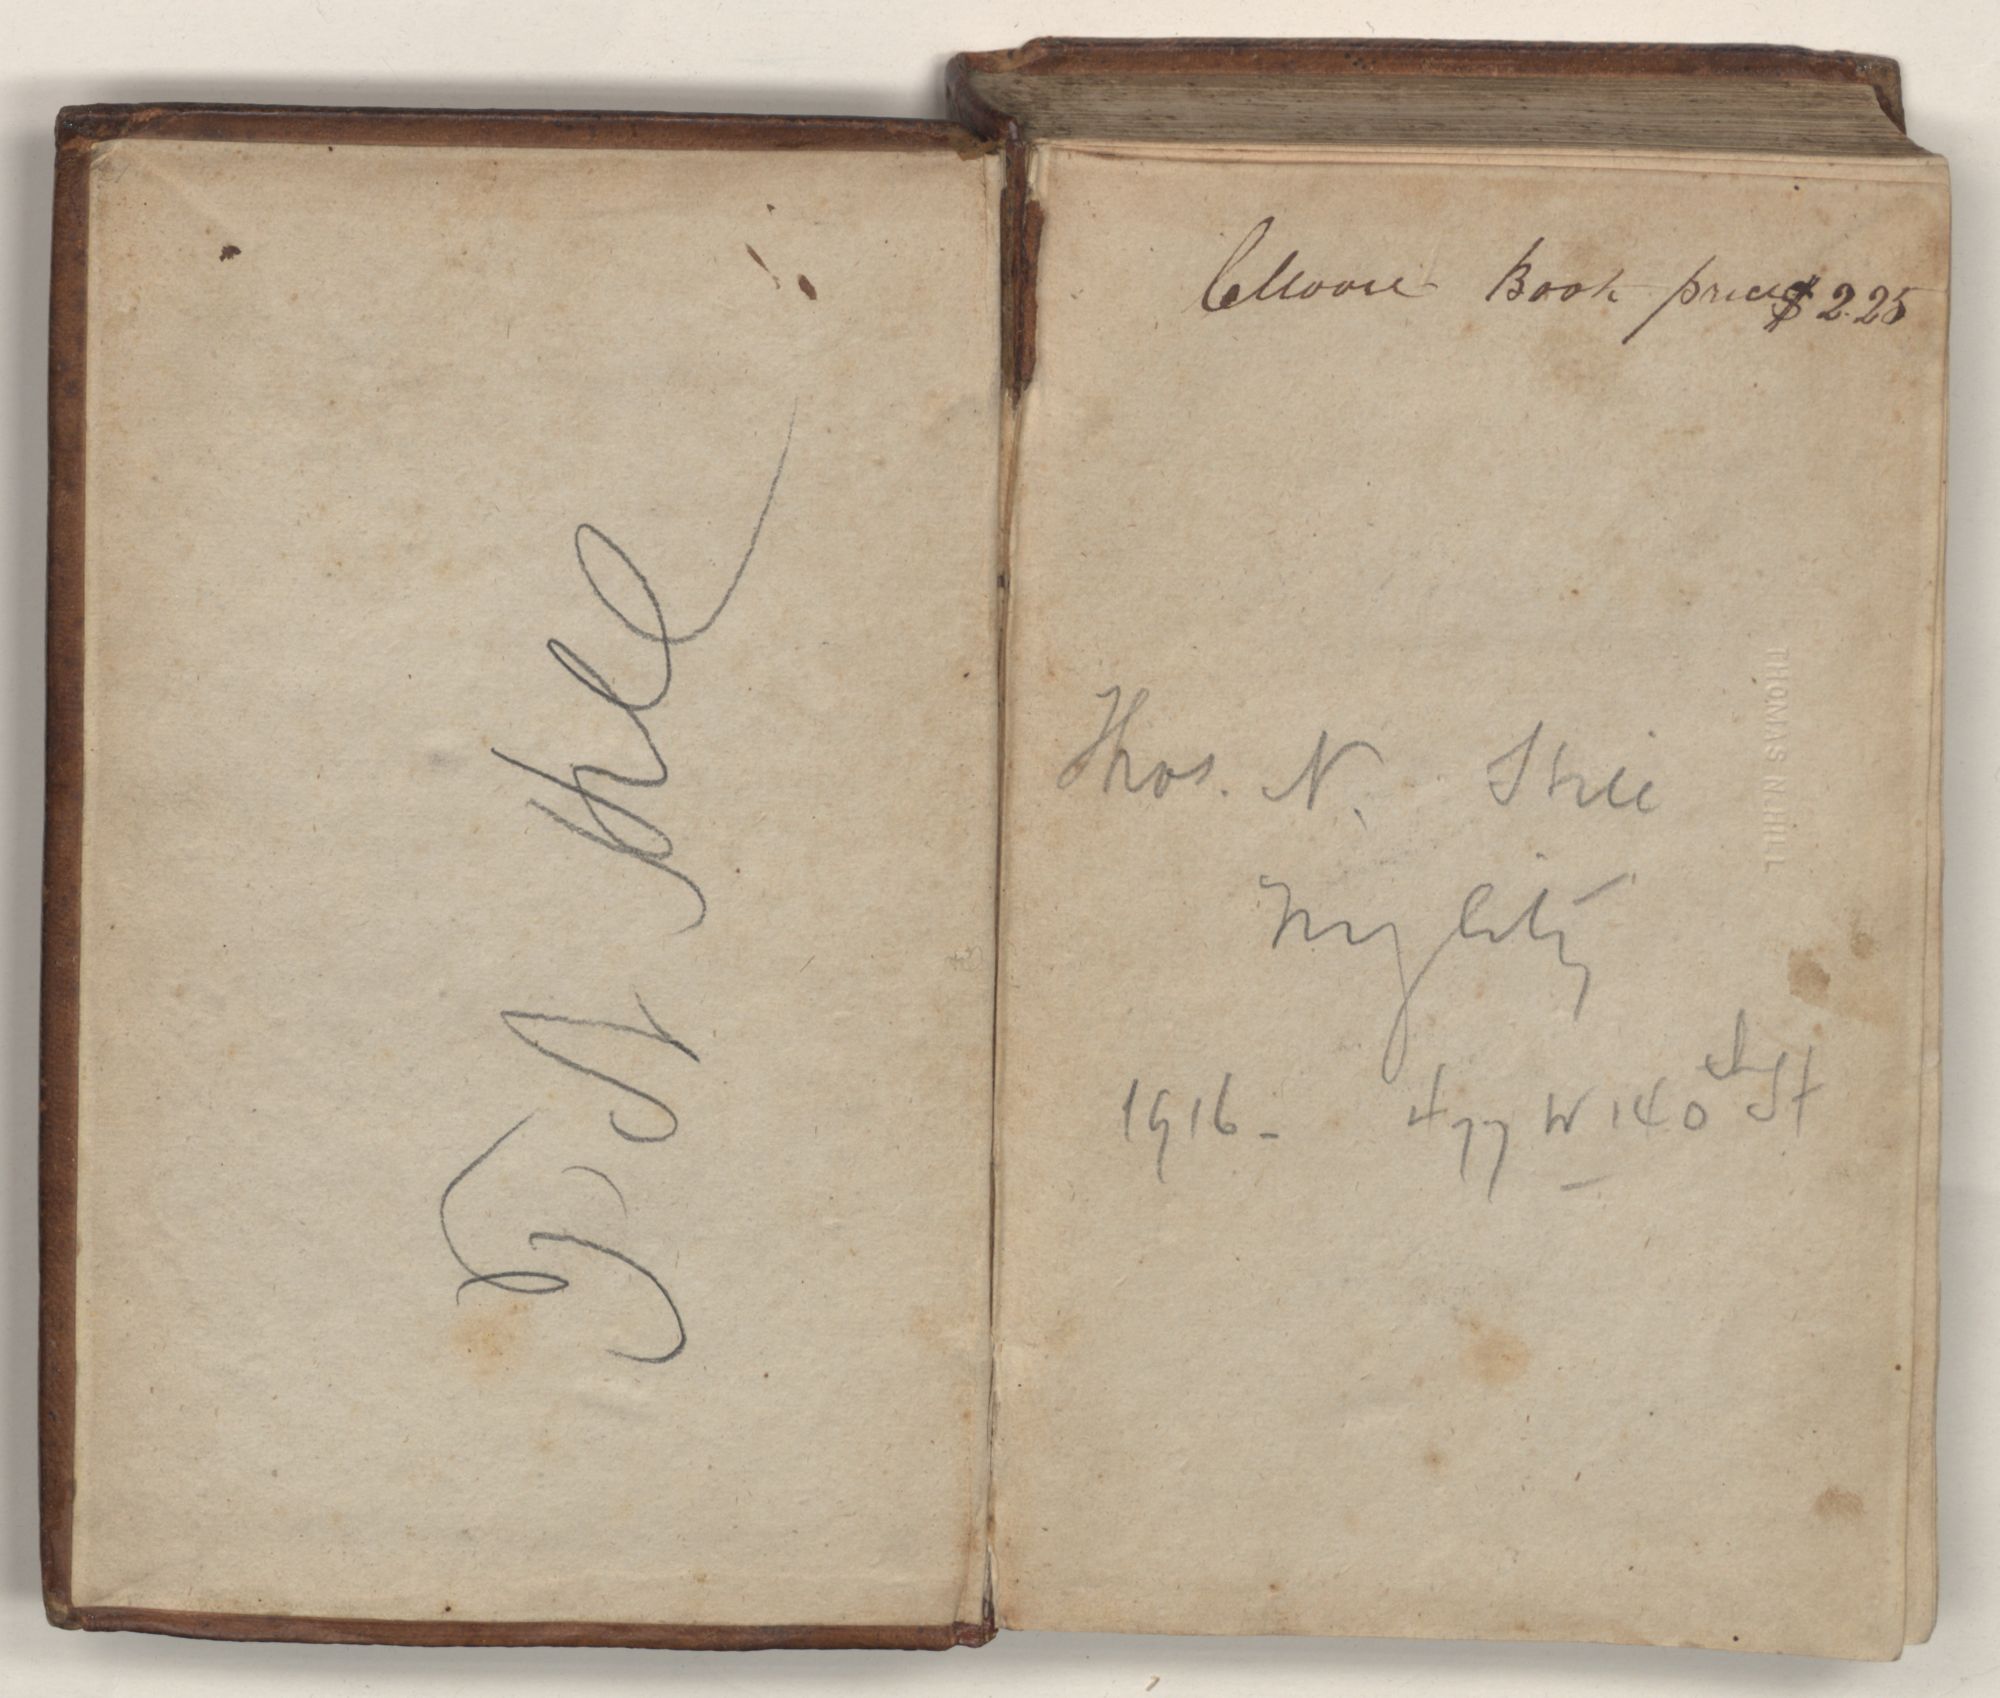 C Moore Book price $2.25
Thos. N.
THOMAS N. HILL
NY City
1916 - 477 W 140th St